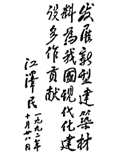 发展新型建筑材
料为我国现代化建
设多作贡献
江泽民
一九九二年
十月十八日